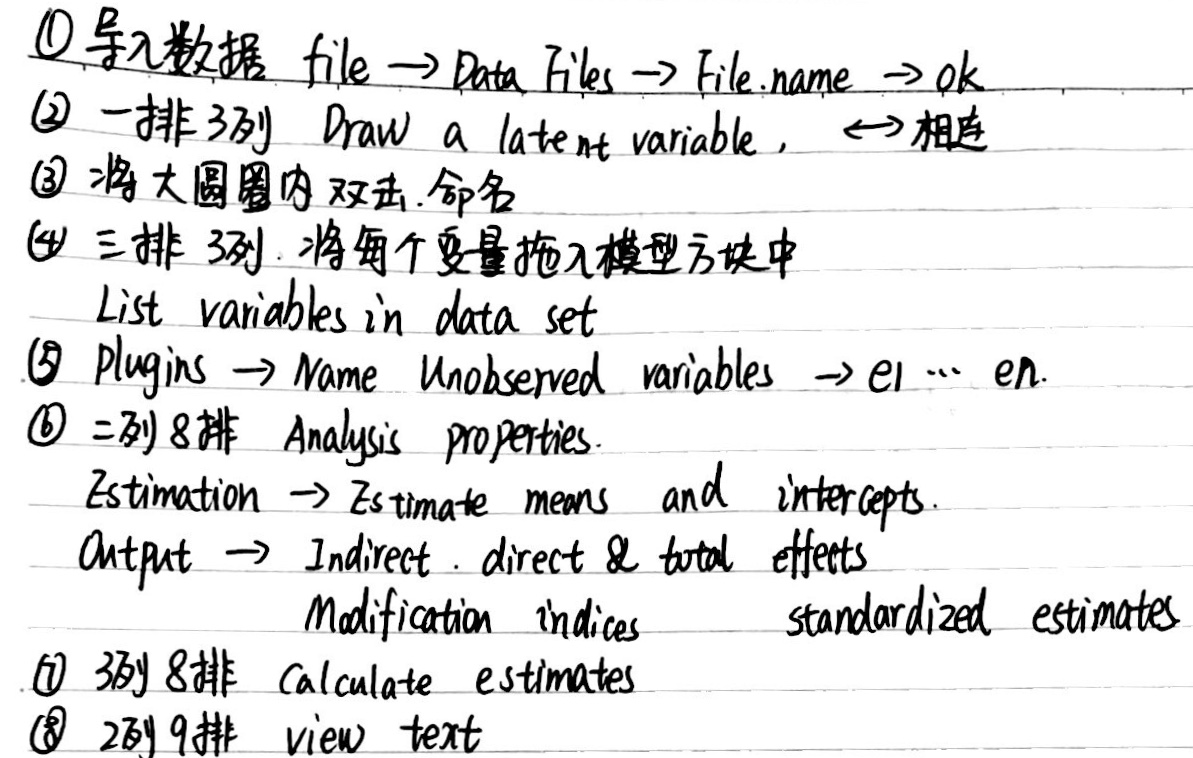 ① 导入数据 file → Data Files → File.name → ok
② 一排3列 Draw a latent variable, ↔ 相连
③ 将大圆圈内双击.命名
④ 三排 3列.将每个变量拖入模型方块中
List variables in data set
⑤ Plugins → Name Unobserved variables → e1 … en.
⑥ 二列8排 Analysis properties.
Estimation → Estimate means and intercepts.
Output → Indirect. direct & total effects
Modification indices standardized estimates
⑦ 3列8排 Calculate estimates
⑧ 2列9排 view text